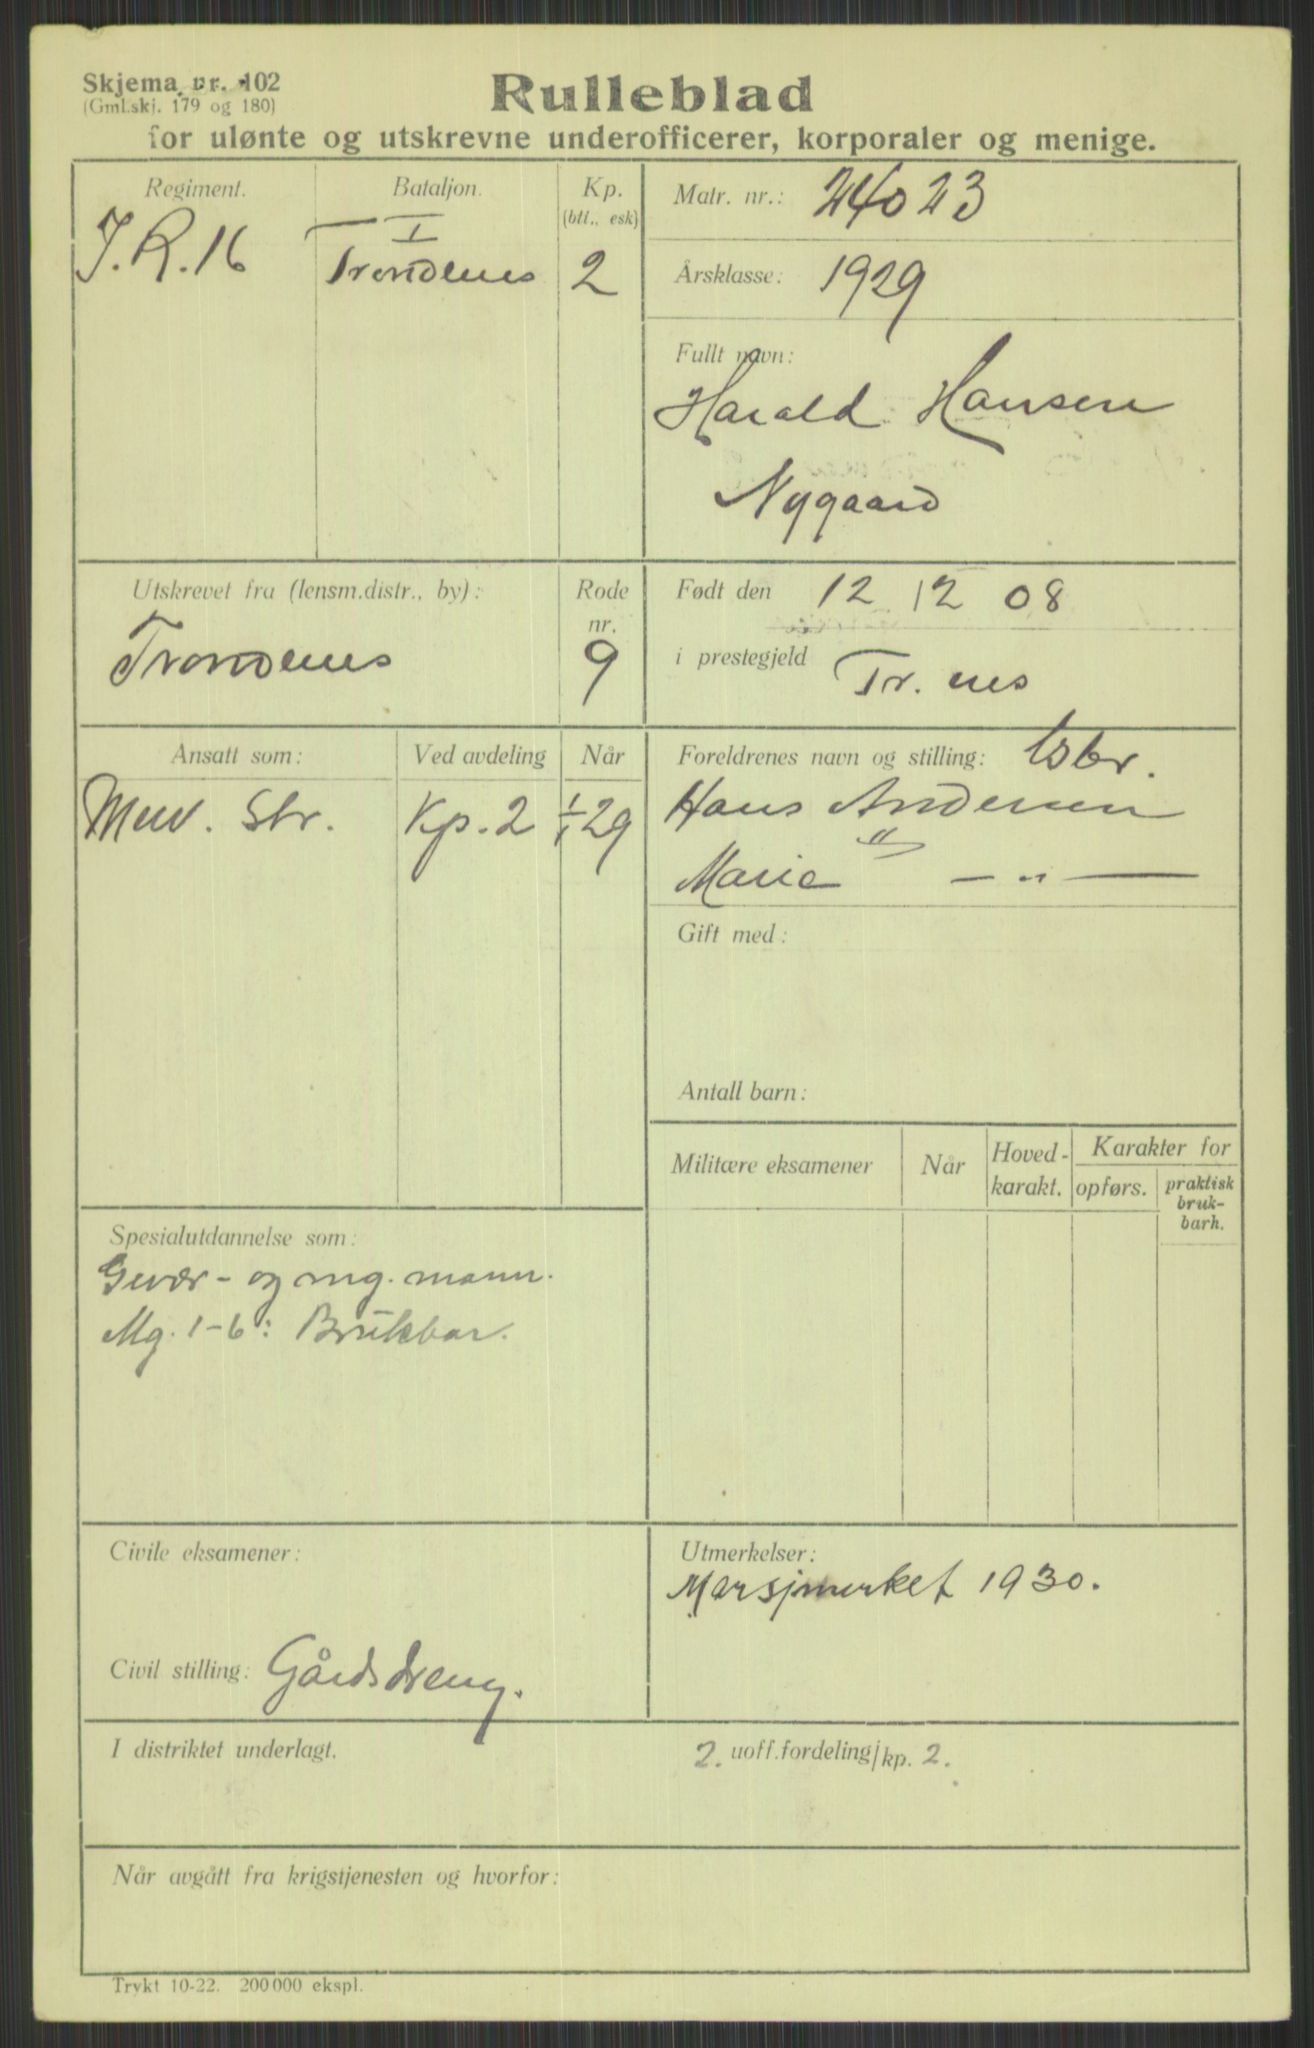 Skjema nr. 102
(Gml.skj. 179 og 180)
Rulleblad
for ulønte og utskrevne underofficerer, korporaler og menige.
Regiment.
I.R.16
Bataljon.
I
Trondenes
Kp.
(btt., esk)
2
Matr. nr.: 24023
Årsklasse: 1929
Fullt navn:
Harald Hansen
Nygaard
Utskrevet fra (lensm.distr., by):
Trondenes
Rode
nr.
9
Født den 12 12 08
i prestegjeld Tr. nes
Ansatt som:
Men. Str.
Ved avdeling
Kp. 2
Når
1/1 29
Foreldrenes navn og stilling: Gbr.
Hans Andersen
Marie — „ —
Gift med:
Antall barn:
Militære eksamener
Når
Hoved-
karakt.
Karakter for
opførs.
praktisk
bruk-
barh.
Spesialutdannelse som:
Gevær- og mg. mann.
Mg. 1-6: Brukbar.
Civile eksamener:
Civil stilling: Gårdsdreng.
Utmerkelser:
Marsjmerket 1930.
I distriktet underlagt.
2. uoff.fordeling/kp. 2.
Når avgått fra krigstjenesten og hvorfor:
Trykt 10-22. 200 000 ekspl.